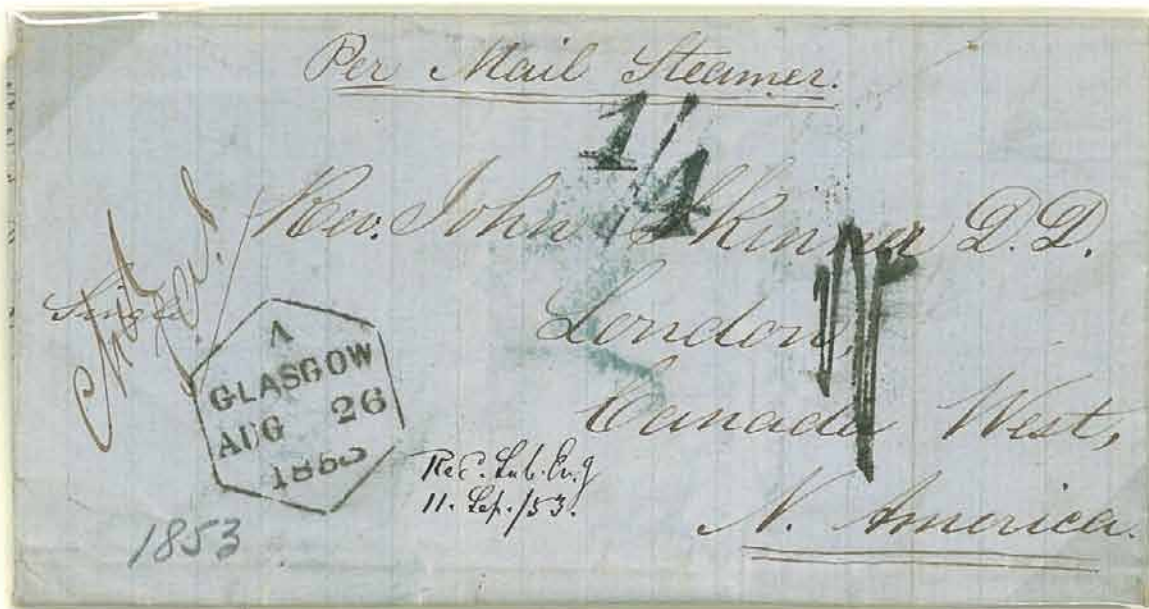 Per Mail Steamer.
1/4
Rev. John Skinner D.D.
London,
Canada West,
N. America.
Single
A
GLASGOW
AUG 26
1853
Rec. Sab. Ev.g
11. Sep./53.
1853